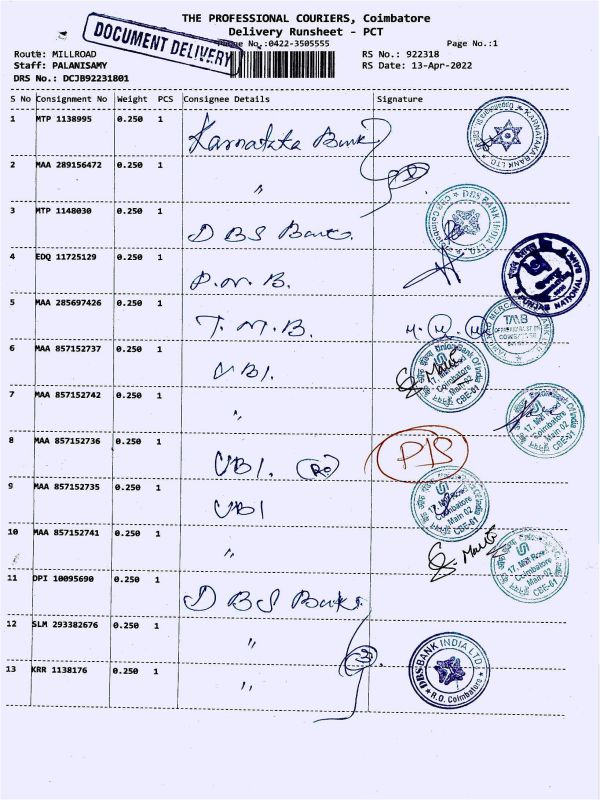 THE PROFESSIONAL COURIERS, Coimbatore
Delivery Runsheet - PCT
DOCUMENT DELIVERY
No.:0422-3505555
Page No.:1
Route: MILLROAD
RS No.: 922318
Staff: PALANISAMY
RS Date: 13-Apr-2022
DRS No.: DCJB92231801
S No Consignment No Weight PCS Consignee Details Signature
1 MTP 1138995 0.250 1 Karnataka Bank
KARNATAKA BANK LTD
2 MAA 289156472 0.250 1 〃
DBS BANK INDIA LTD.
3 MTP 1148030 0.250 1 DBS Bank.
4 EDQ 11725129 0.250 1 P.N.B.
PUNJAB NATIONAL BANK
5 MAA 285697426 0.250 1 T.M.B.
TMB
6 MAA 857152737 0.250 1 UBI.
Union Bank Of India
17, Mill Road
Coimbatore
Main-02
CBE-01
7 MAA 857152742 0.250 1 〃
17, Mill Road
Coimbatore
Main 02
CBE-01
8 MAA 857152736 0.250 1 UBI.
9 MAA 857152735 0.250 1 UBI
Coimbatore
Main 02
CBE-01
10 MAA 857152741 0.250 1 〃
17, Mill Road
Coimbatore
Main-02
CBE-01
11 DPI 10095690 0.250 1 DBS Bank.
12 SLM 293382676 0.250 1 〃
13 KRR 1138176 0.250 1 〃
DBS BANK INDIA LTD
R.O. Coimbatore